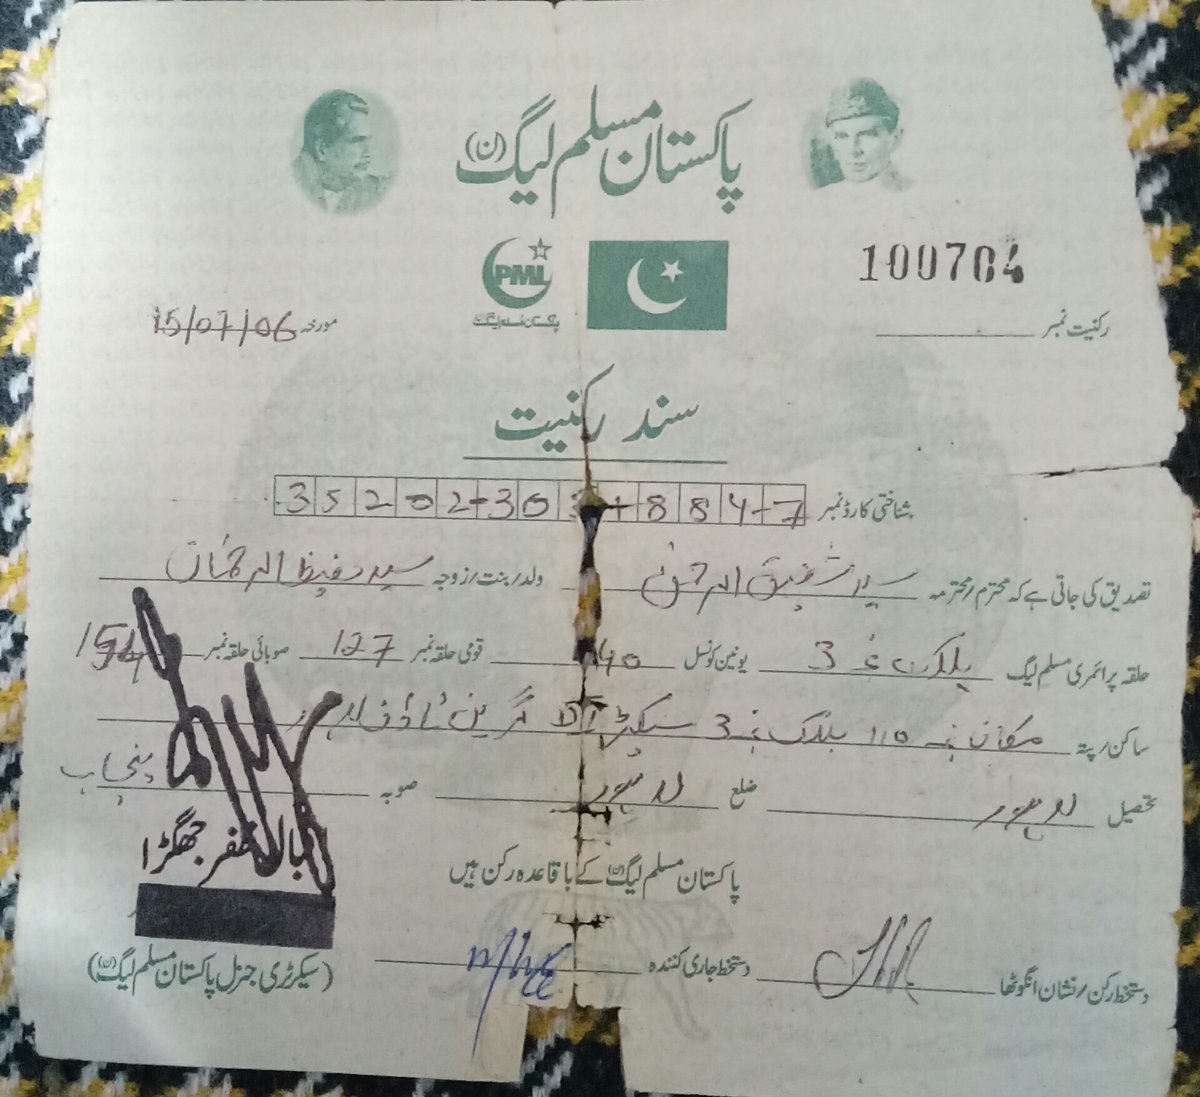 پاکستان مسلم لیگ (ن)
PML
پاکستان مسلم لیگ
100764
رکنیت نمبر
مورخہ 15/07/06
سند رکنیت
شناختی کارڈ نمبر 35202-30 884-7
تصدیق کی جاتی ہے کہ محترم/محترمہ سید شفیق الرحمٰن ولد/بنت/زوجہ سید حفیظ الرحمٰن
حلقہ پرائمری مسلم لیگ بلاک نمبر 3 یونین کونسل 140 قومی حلقہ نمبر 127 صوبائی حلقہ نمبر 154
ساکن/پتہ مکان نمبر 110 بلاک نمبر 3 سیکٹر گرین ٹاؤن لاہور
تحصیل لاہور ضلع لاہور صوبہ پنجاب
پاکستان مسلم لیگ (ن) کے باقاعدہ رکن ہیں
ظفر جھگڑا
دستخط رکن/نشان انگوٹھا دستخط جاری کنندہ (سیکرٹری جنرل پاکستان مسلم لیگ (ن))